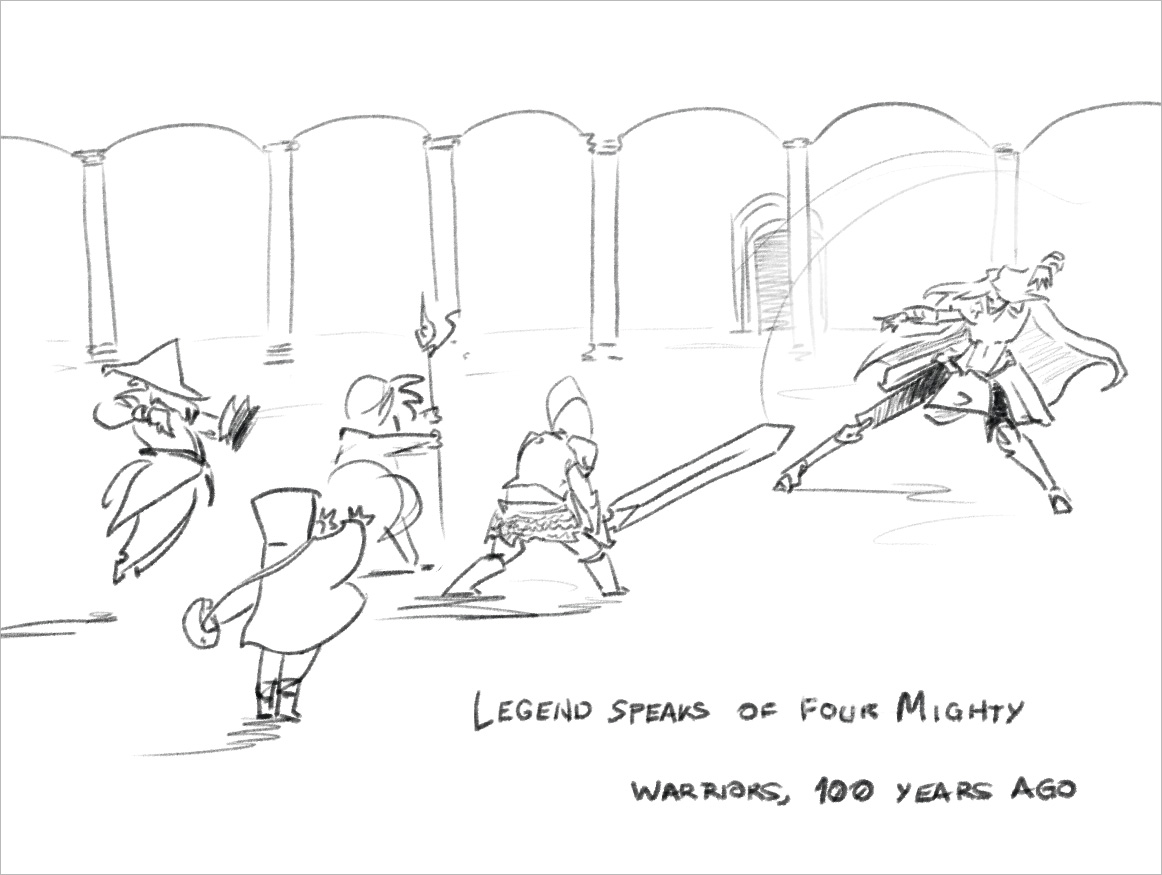 LEGEND SPEAKS OF FOUR MIGHTY
WARRIORS, 100 YEARS AGO